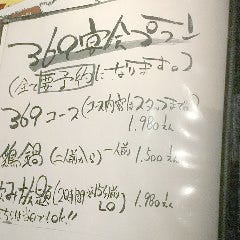 369宴会プラン!
(全て要予約になります。)
369コース(コース内容はスタッフまで)
1,980えん
鶏鍋(二人前から)一人前 1,500えん
飲み放題(2時間 LO) 1,980えん
当日OK!!